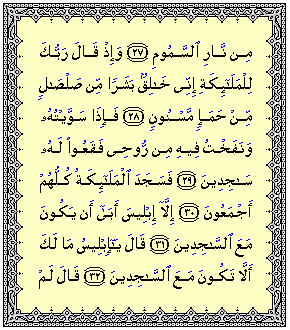 مِن نَّارِ ٱلسَّمُومِ ﴿٢٧﴾ وَإِذْ قَالَ رَبُّكَ
لِلْمَلَٰٓئِكَةِ إِنِّى خَٰلِقٌۢ بَشَرًا مِّن صَلْصَٰلٍ
مِّنْ حَمَإٍ مَّسْنُونٍ ﴿٢٨﴾ فَإِذَا سَوَّيْتُهُۥ
وَنَفَخْتُ فِيهِ مِن رُّوحِى فَقَعُوا۟ لَهُۥ
سَٰجِدِينَ ﴿٢٩﴾ فَسَجَدَ ٱلْمَلَٰٓئِكَةُ كُلُّهُمْ
أَجْمَعُونَ ﴿٣٠﴾ إِلَّآ إِبْلِيسَ أَبَىٰٓ أَن يَكُونَ
مَعَ ٱلسَّٰجِدِينَ ﴿٣١﴾ قَالَ يَٰٓإِبْلِيسُ مَا لَكَ
أَلَّا تَكُونَ مَعَ ٱلسَّٰجِدِينَ ﴿٣٢﴾ قَالَ لَمْ